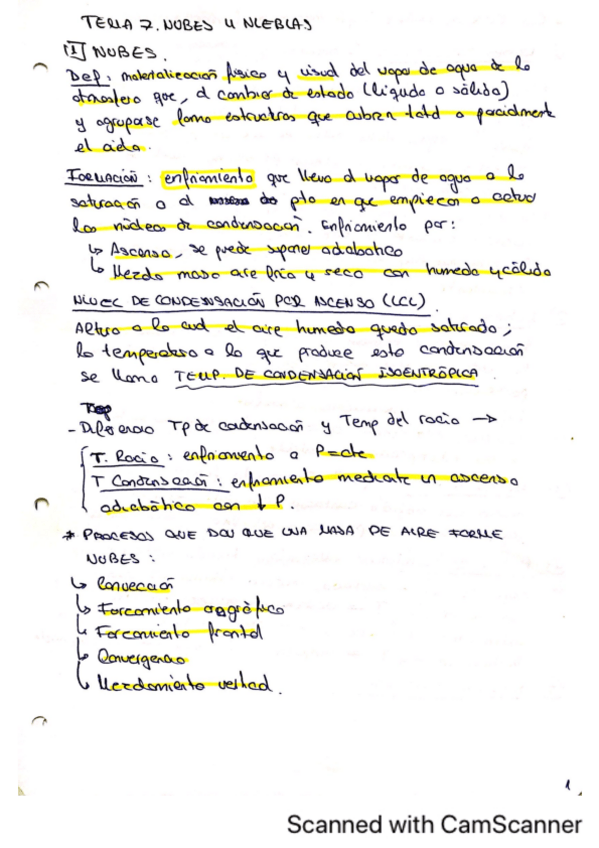 TEMA 7. NUBES Y NIEBLAS
1 NUBES.
Def: materialización físico y visual del vapor de agua de la
atmósfera que, al cambiar de estado (líquido o sólido)
y agruparse forma estructuras que cubren total o parcialmente
el cielo.
FORMACIÓN: enfriamiento que lleva al vapor de agua a la
saturación o al pto en que empiecen a actuar
los núcleos de condensación. Enfriamiento por:
↳ Ascenso, se puede suponer adiabático
↳ Mezcla masa aire fría y seco con humeda y cálida
NIVEL DE CONDENSACIÓN POR ASCENSO (LCL).
Altura a la cual el aire humedo queda saturado;
la temperatura a la que produce esta condensación
se llama TEMP. DE CONDENSACIÓN ISOENTRÓPICA
- Diferencia Tp de condensación y Temp del rocío →
T. Rocío: enfriamiento a P=cte
T Condensación: enfriamiento mediante un ascenso
adiabático con ↓ P.
* PROCESOS QUE DAN QUE UNA MASA DE AIRE FORME
NUBES:
↳ Convección
↳ Forzamiento orográfico
↳ Forzamiento frontal
↳ Convergencia
↳ Mezclamiento vertical.
1
Scanned with CamScanner